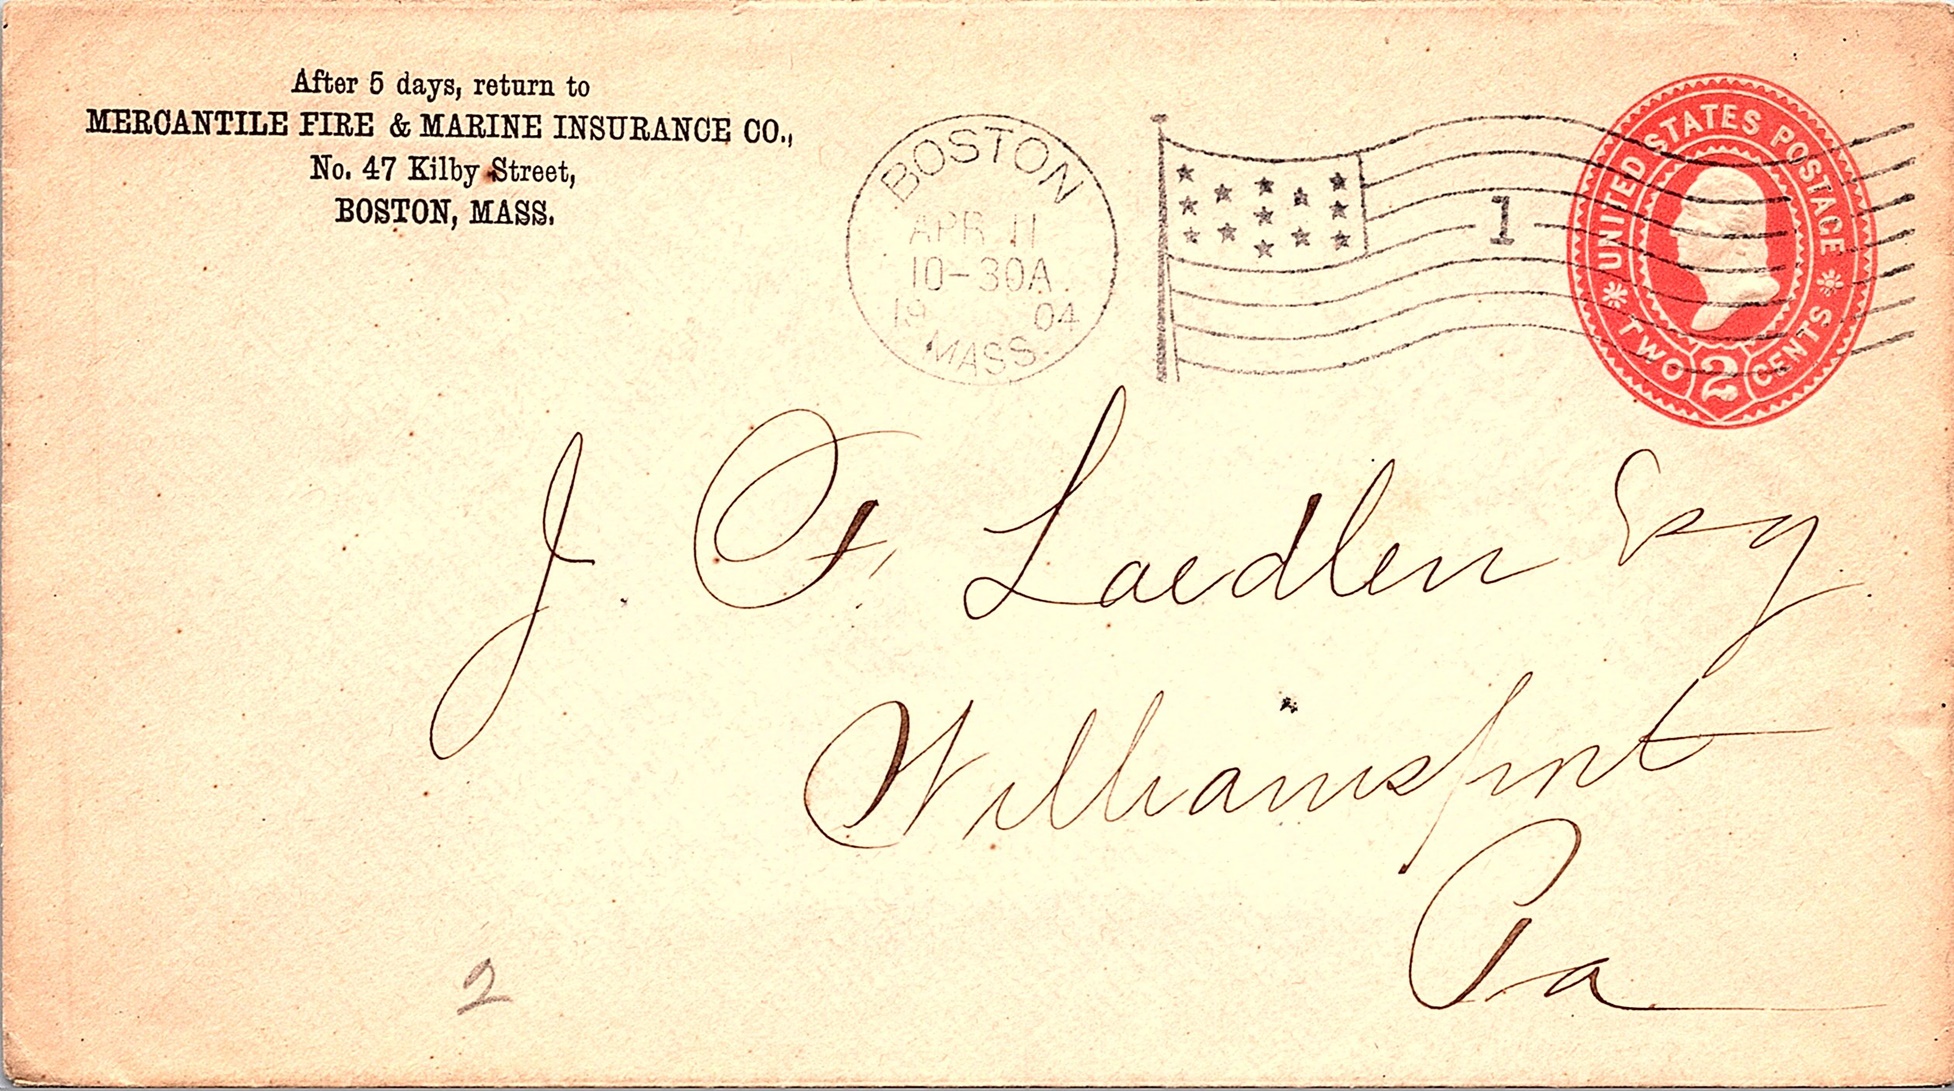 After 5 days, return to
MERCANTILE FIRE & MARINE INSURANCE CO.,
No. 47 Kilby Street,
BOSTON, MASS.
BOSTON
APR 11
10-30A.
19 04
MASS.
1
UNITED STATES POSTAGE
TWO 2 CENTS
J. F. Laedlein Esq
Williamsport
Pa
2